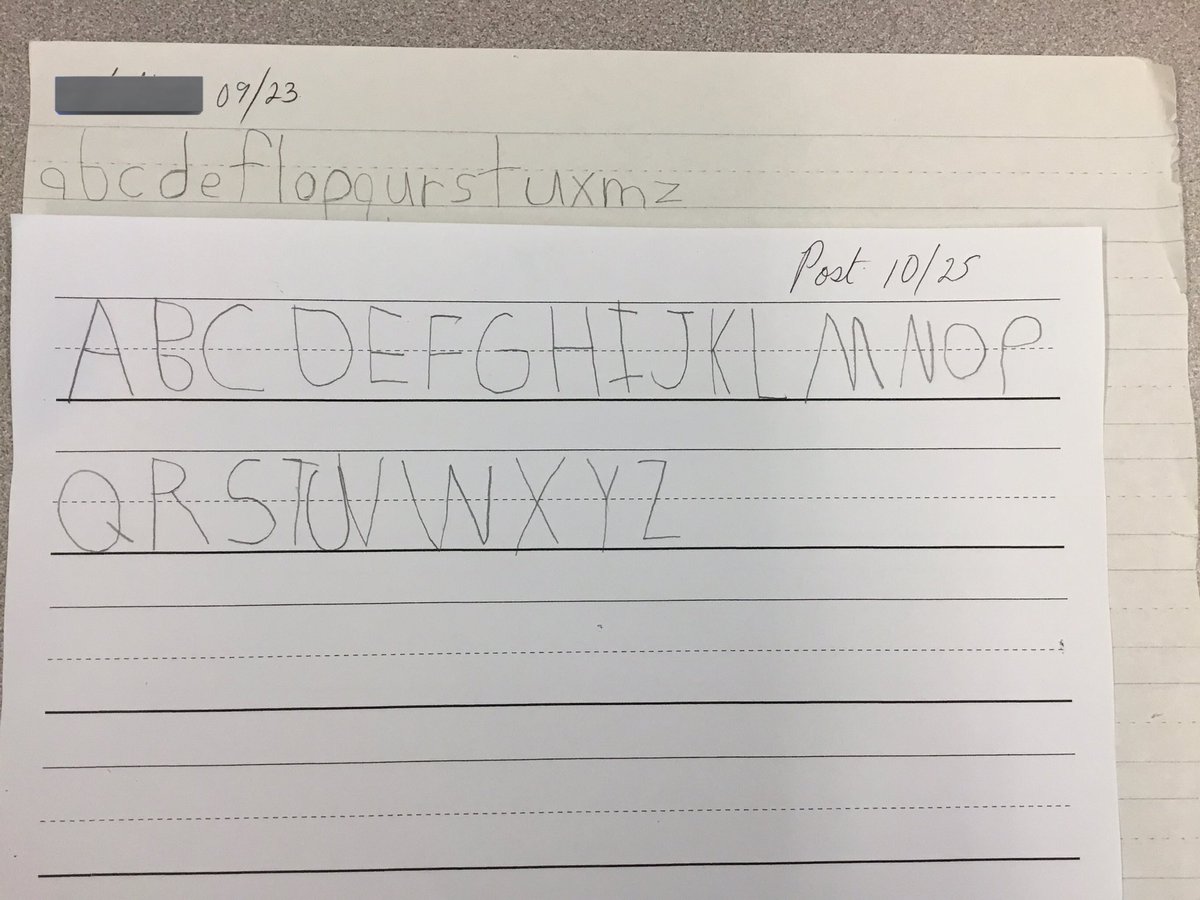 09/23
abcdeflopqurstuxmz
Post 10/25
ABCDEFGHIJKLMNOP
QRSTUVWXYZ